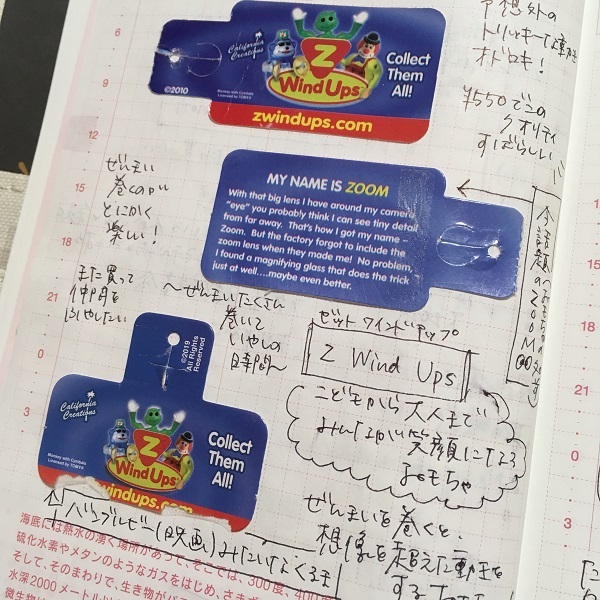 予想外の
トリッキーな動き
オドロキ!
California Creations
Z
Wind Ups
Collect
Them
All!
©2010
Monkey with Cymbals
Licensed by TOMY®
zwindups.com
¥550でこの
クオリティ
すばらしい
6
9
12
15
18
21
0
3
ぜんまい
巻くのが
とにかく
楽しい!
また買って
仲間を
ふやしたい
MY NAME IS ZOOM
With that big lens I have around my camera
"eye" you probably think I can see tiny detail
from far away. That's how I got my name –
Zoom. But the factory forgot to include the
zoom lens when they made me! No problem,
I found a magnifying glass that does the trick
just at well....maybe even better.
〜ぜんまいたくさん
巻いて
いやしの
時間〜
ゼットワインドアップ
Z Wind Ups
こどもから大人まで
みんなが笑顔になる
おもちゃ
©2019
All Rights
Reserved
California Creations
Z
Wind Ups
Collect
Them
All!
Monkey with Cymbals
Licensed by TOMY®
windups.com
バンブルビー(映画)みたいなくるま
ぜんまいを巻くと、
想像を超えた動きを
する
21
0
3
海底には熱水の湧く場所があって、そこでは、300度、400
硫化水素やメタンのようなガスをはじめ、さまざ
そして、そのまわりで、生き物が
水深2000メートル以
微生物